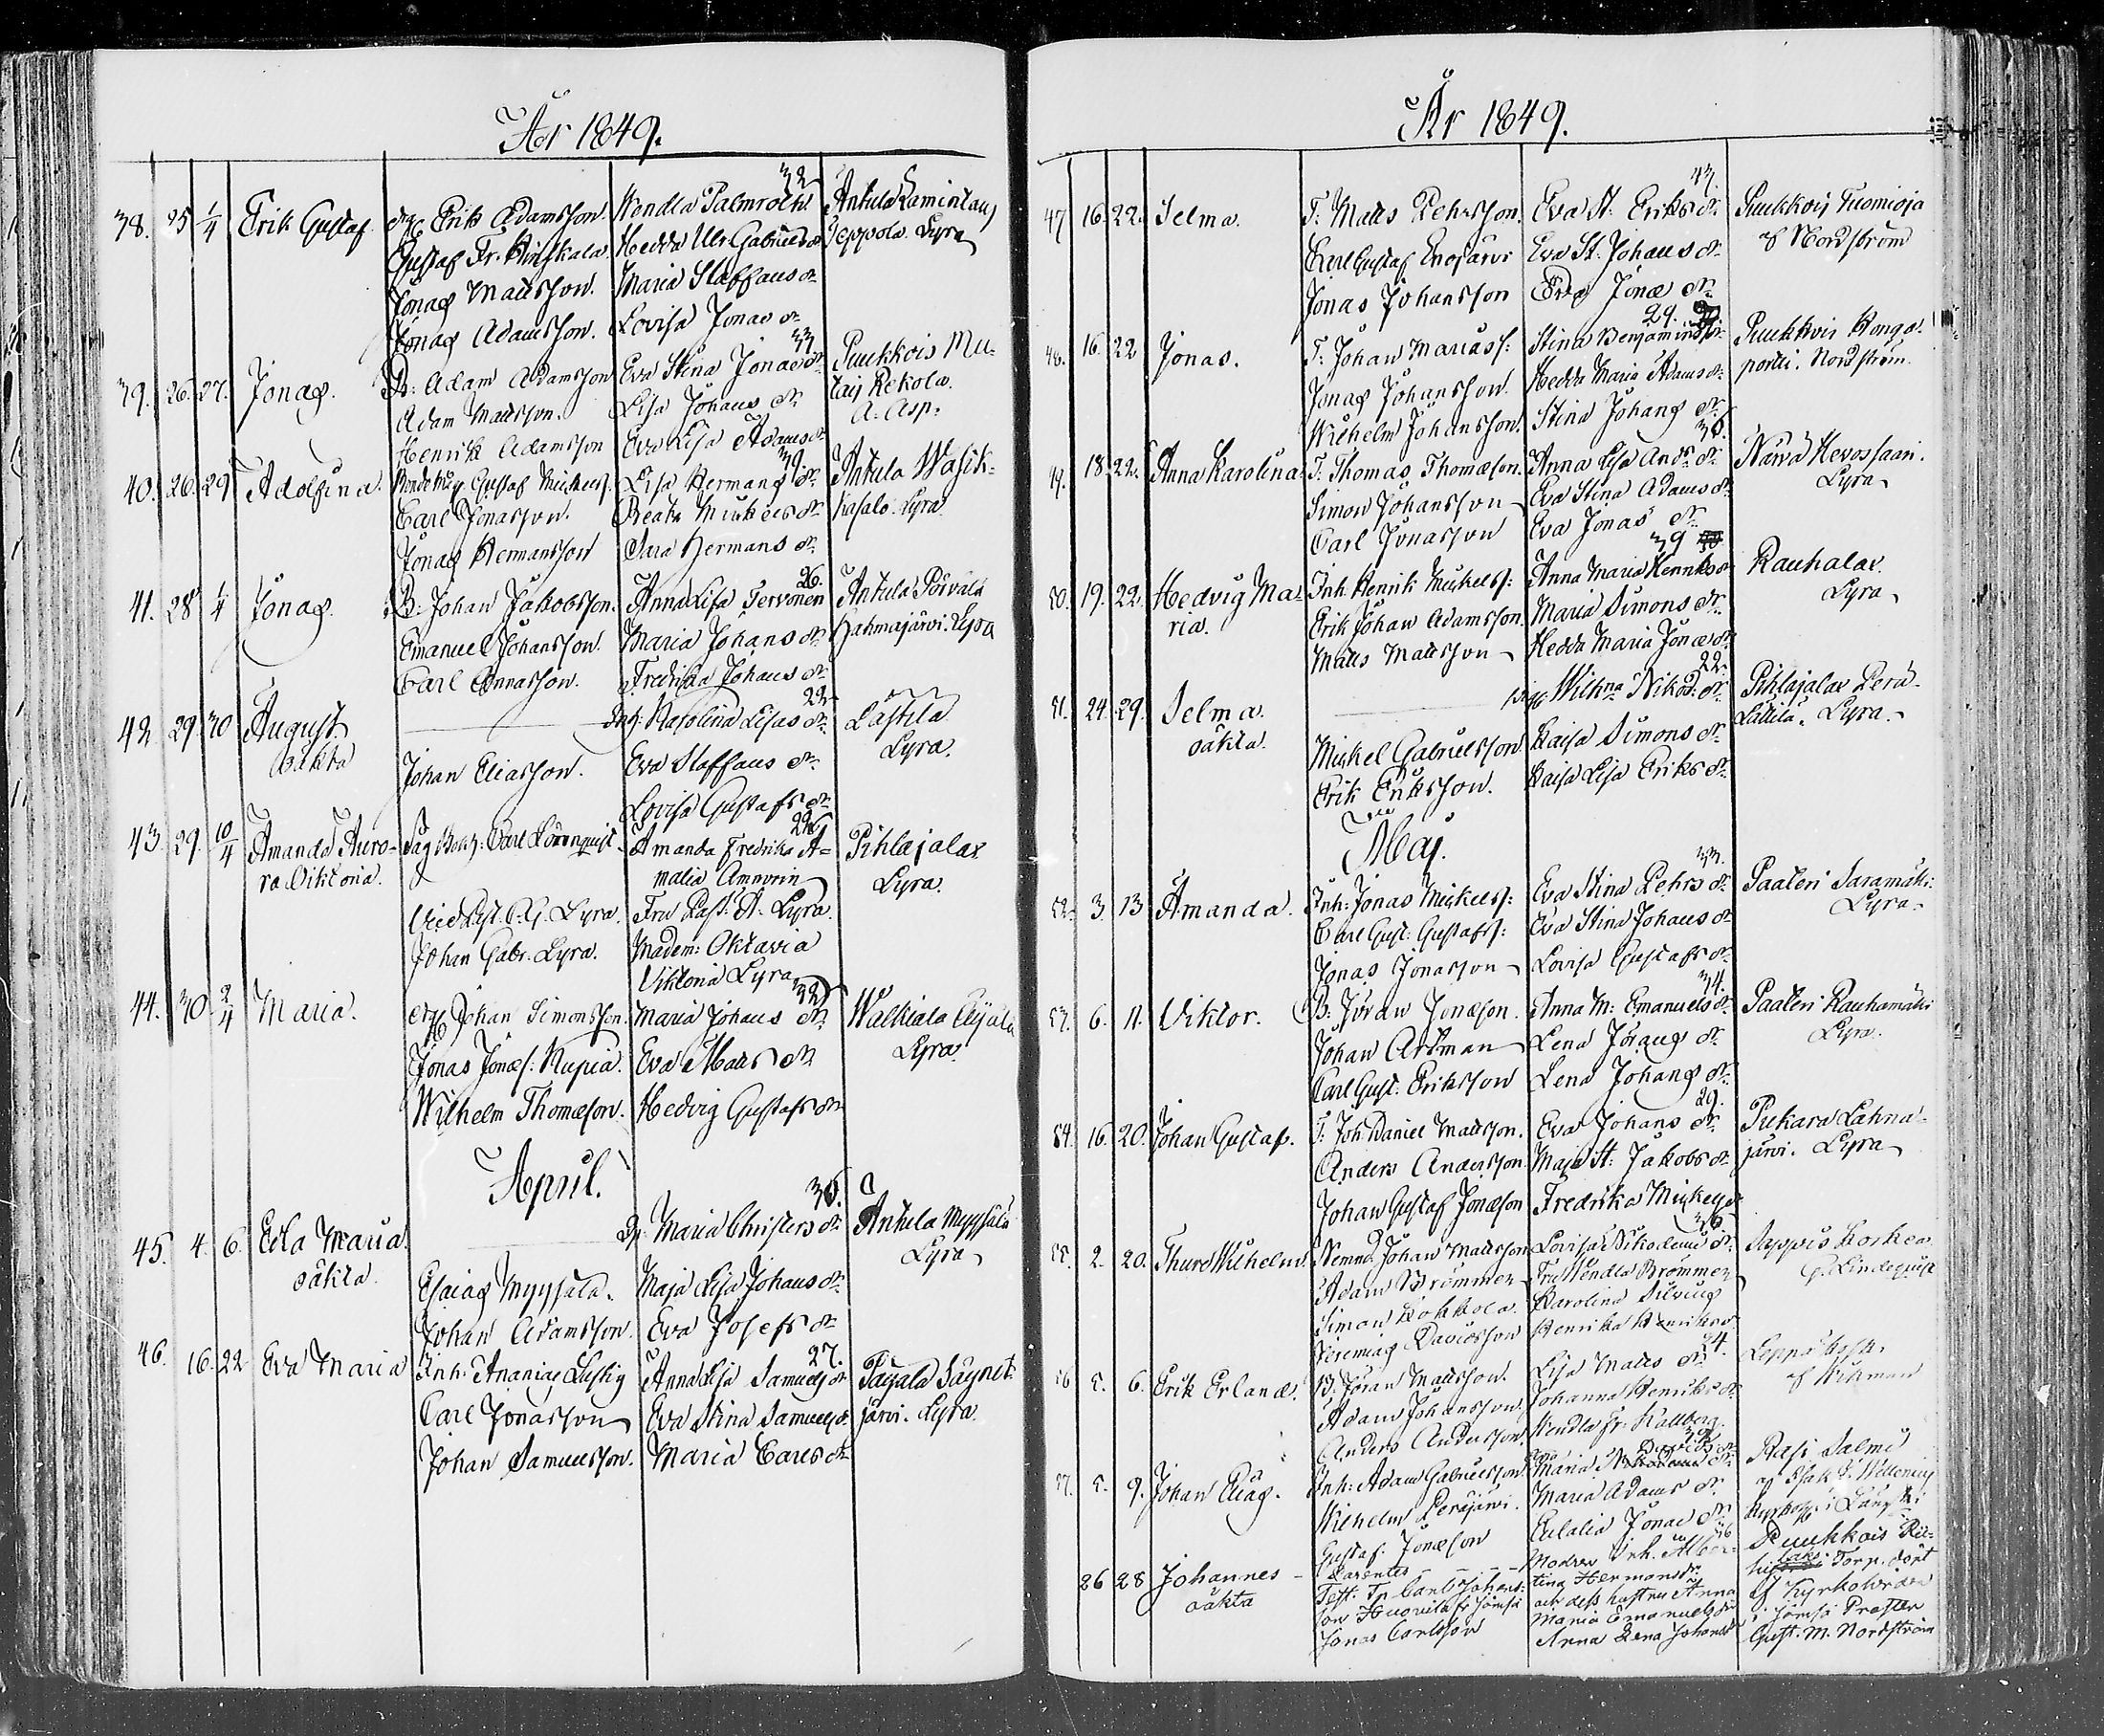 År 1849.
38. 25 1/4 Erik Gustaf. Erik Adamsson. Wendla Palmroth. 32 Antula
Gustaf Fr. Hinskala. Hedda Ulr. Gabriels dr. Seppola. Lyra
Jonas Mattsson. Maria Staffans dr.
Jonas Adamsson. Lovisa Jonae dr.
39. 26. 27. Jonas. B: Adam Adamsson Eva Stina Jonae dr. 33 Puukkois
Adam Mattsson. Lisa Johans dr. Rekola.
Henrik Adamsson Eva Lisa Adams dr. A. Asp.
40. 26. 29 Adolfina. Gustaf Mickelss. Lisa Hermans dr. 39 Antula Wasik-
Carl Jonasson. Beata Mickels dr. kasalo. Lyra
Jonas Hermansson Sara Hermans dr.
41. 28 1/4 Jonas. B: Johan Jakobsson. Anna Lisa Tervonen 26. Antula
Emanuel Johansson. Maria Johans dr. Hahmajärvi. Lyra
Carl Jonasson. Fredrika Johans dr.
42. 29. 30 August. Inh: Karolina Lisas dr. 22 Lästilä
oäkta Johan Eliasson. Eva Staffans dr. Lyra.
Lovisa Gustafs dr.
43. 29. 10/4 Amanda Auro- Carl Lönnquist. Amanda Fredrika A- 22 Pihlajalax
ra Viktoria. malia Lyra.
C. G. Lyra. Fru Past: A. Lyra.
Johan Gabr. Lyra. Madem: Oktavia
Viktoria Lyra
44. 30. 2/4 Maria. Johan Simonsson. Maria Johans dr. 32 Walkiala Eijala
Jonas Jonaes: Kupia. Eva Matts dr. Lyra.
Wilhelm Thomaeson. Hedvig Gustafs dr.
April.
45. 4. 6. Edla Maria. Maria Christers dr. 36. Antula Myyssälä
oäkta. Esaias Myyssälä. Maja Lisa Johans dr. Lyra
Johan Adamsson. Eva Josefs dr.
46. 16. 22 Eva Maria Inh: Ananias Lustig Anna Lisa Samuels dr. 27. Päijälä Säynet-
Carl Jonasson Eva Stina Samuels dr. järvi. Lyra.
Johan Samuelsson. Maria Carls dr.
År 1849.
47 16. 22. Selma. T: Matts Pehrsson. Eva St. Eriks dr. 43. Puukkois Tuomioja
Carl Gustaf Enojärvi Eva St. Johans dr. af Nordström
Jonas Johansson Eva Jonae dr.
48. 16. 22 Jonas. T: Johan Mariass: Stina Benjamins dr. 29. Puukkois Kongo-
Jonas Johansson. Hedda Maria Adams dr. portti. Nordström.
Wilhelm Johansson. Stina Johans dr.
49. 18. 22. Anna Karolina. T: Thomas Thomaeson. Anna Lisa Ands dr. 36. Närvä Hevossaari.
Simon Johansson Eva Stina Adams dr. Lyra
Carl Jonasson Eva Jonas dr.
50. 19. 22. Hedvig Ma- Inh: Henrik Mickelss: Anna Maria Henriks dr. 39 Rauhalax
ria. Erik Johan Adamsson. Maria Simons dr. Lyra
Matts Mattsson Hedda Maria Jonae dr.
51. 24. 29. Selma. Wilhna Nikod: dr. 22. Pihlajalax Perä-
oäkta. Mickel Gabrielsson. Kaisa Simons dr. Lättilä. Lyra.
Erik Eriksson. Kaisa Lisa Eriks dr.
Maj.
52. 3. 13 Amanda. Inh: Jonas Mickelss: Eva Stina Pehrs dr. 33. Paateri Saramäki.
Carl Gust: Gustafss: Eva Stina Johans dr. Lyra.
Jonas Jonasson Lovisa Gustafs dr.
53. 6. 11. Viktor. B: Jöran Jonaeson. Anna M: Emanuels dr. 34. Paateri Rauhamäki
Johan Artman Lena Jörans dr. Lyra.
Carl Gust: Eriksson Lena Johans dr.
54. 16. 20. Johan Gustaf. T: Joh: Daniel Mattsson. Eva Johans dr. 29. Pukara Lahna-
Anders Andersson. Maja St: Jakobs dr. järvi. Lyra
Johan Gustaf Jonaeson Fredrika Mickels dr.
55. 2. 20. Thure Wilhelm. Nemnd. Johan Mattsson Lovisa Nikodemi dr. 36. Jappis Koskea
Adam Brommer Fru Wendla Brommer G. Lindequist
Simon Kokkola. Karolina Silvius
Jeremias Davidsson Henrika Henriks dr.
56 5. 6. Erik Erland. B: Jöran Mattsson. Lisa Matts dr. 34. Leppäkoski.
Adam Johansson. Johanna Henriks dr. af Wikman
Anders Andersson. Wendla Fr. Kallberg.
57. 5. 9. Johan Elias. Inh: Adam Gabrielsson. Maria Davids dr. Rasi Salmi
Wilhelm Perajärvi. Maria Adams dr. af
Gustaf Jonaeson Eulalia Jonae dr.
26 28 Johannes Parentes Modren Inh. Alber- Puukkois
oäkta Test: Carl Johans- tina Hermansdr. Torp. döpt
son och dess hustru Anna af Kyrkoherden
Jonas Carlsson Maria Emanuelsdr. i Jämsä Prosten
Anna Lena Johansdr Gust. M. Nordström